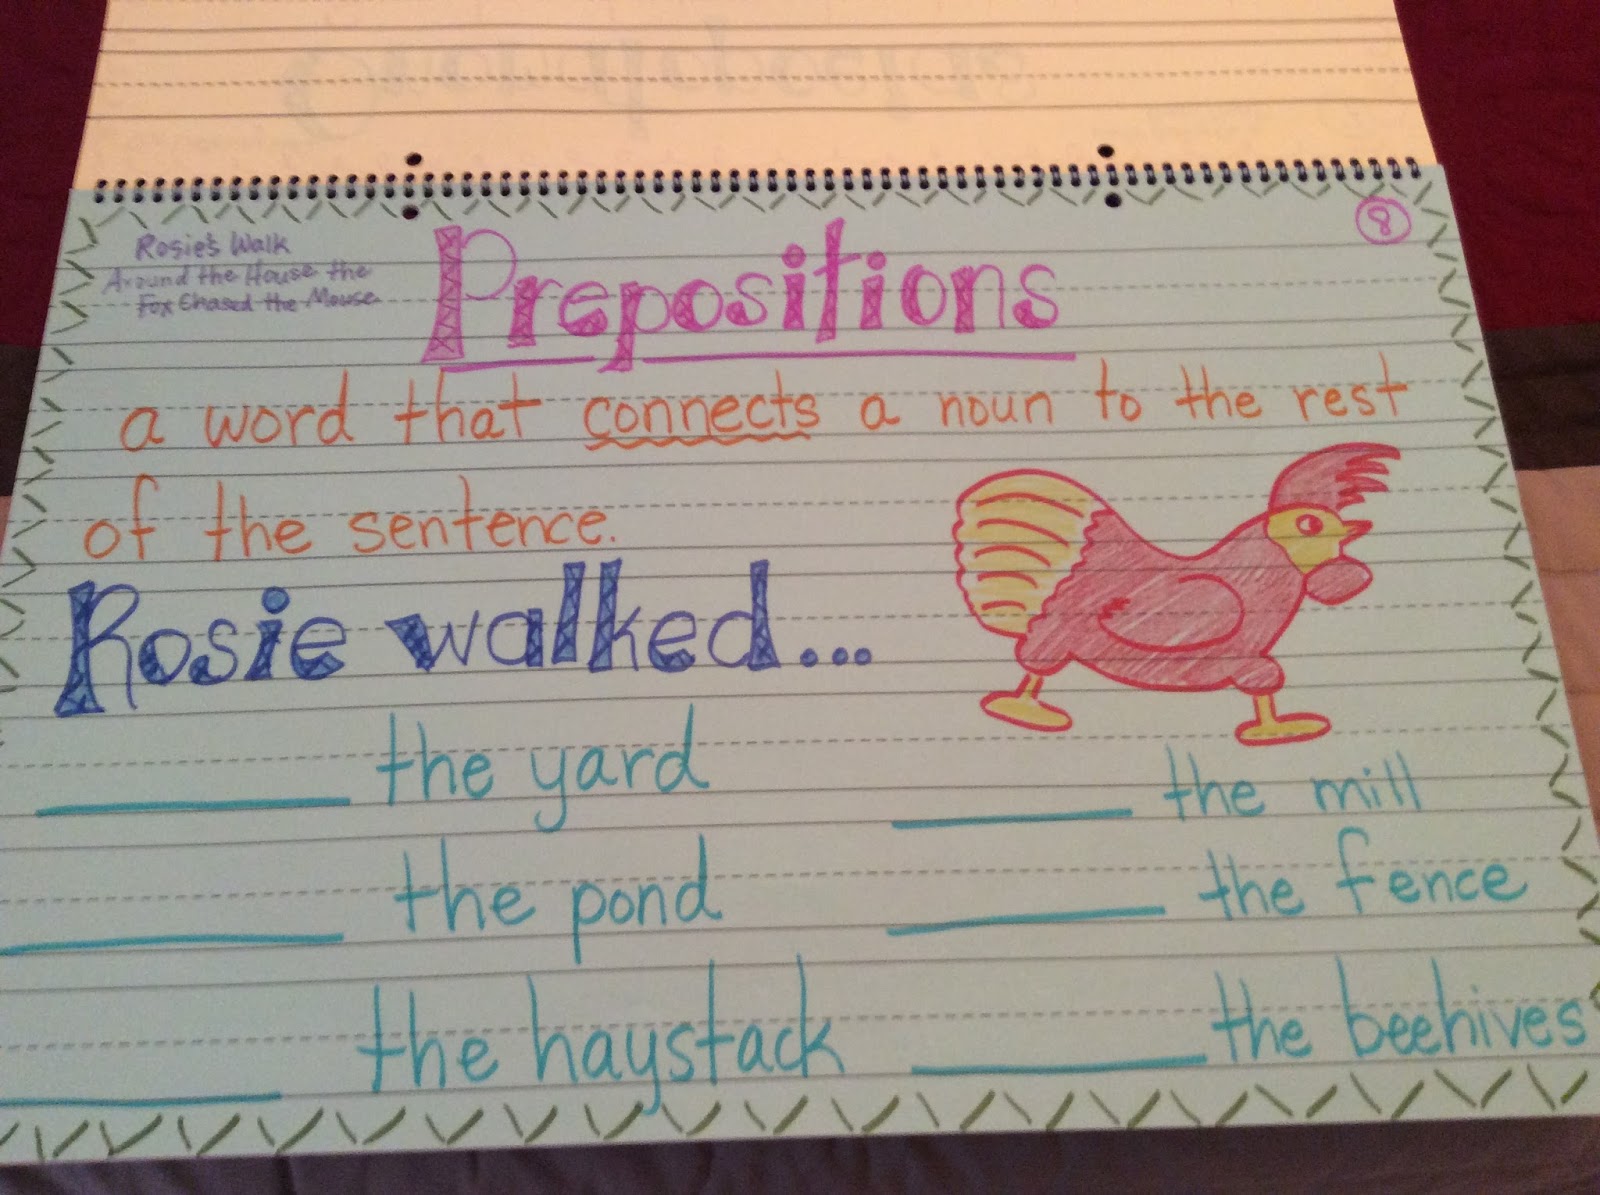 Rosie's Walk
Around the House the
Fox Chased the Mouse
8
Prepositions
a word that connects a noun to the rest
of the sentence.
Rosie walked...
the yard
the mill
the pond
the fence
the haystack
the beehives